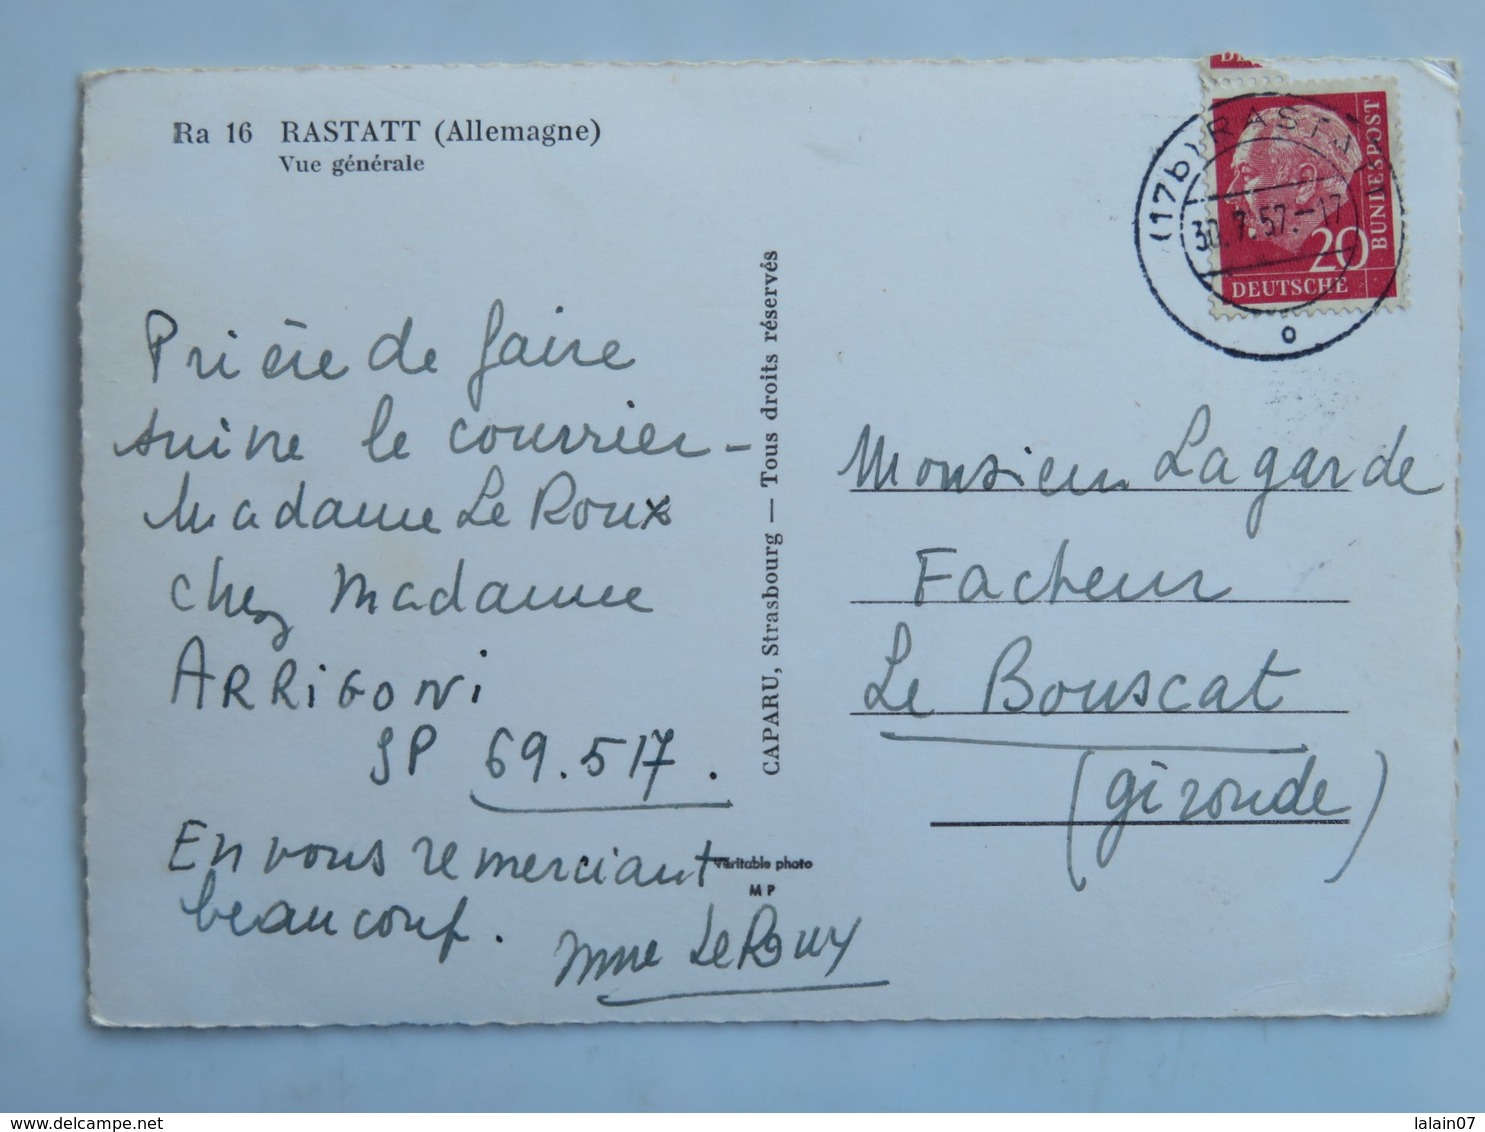 Ra 16 RASTATT (Allemagne)
Vue générale
Prière de faire
suivre le courrier -
Madame Le Roux
chez Madame
ARRIGONI
SP 69.517.
En vous remerciant
beaucoup.
Mme Le Roux
CAPARU, Strasbourg — Tous droits réservés
Véritable photo
MP
(17b) RASTA
30.7.57.-17
o
20
DEUTSCHE
BUNDESPOST
Monsieur Lagarde
Facteur
Le Bouscat
(Gironde)
www.delcampe.net
lalain07